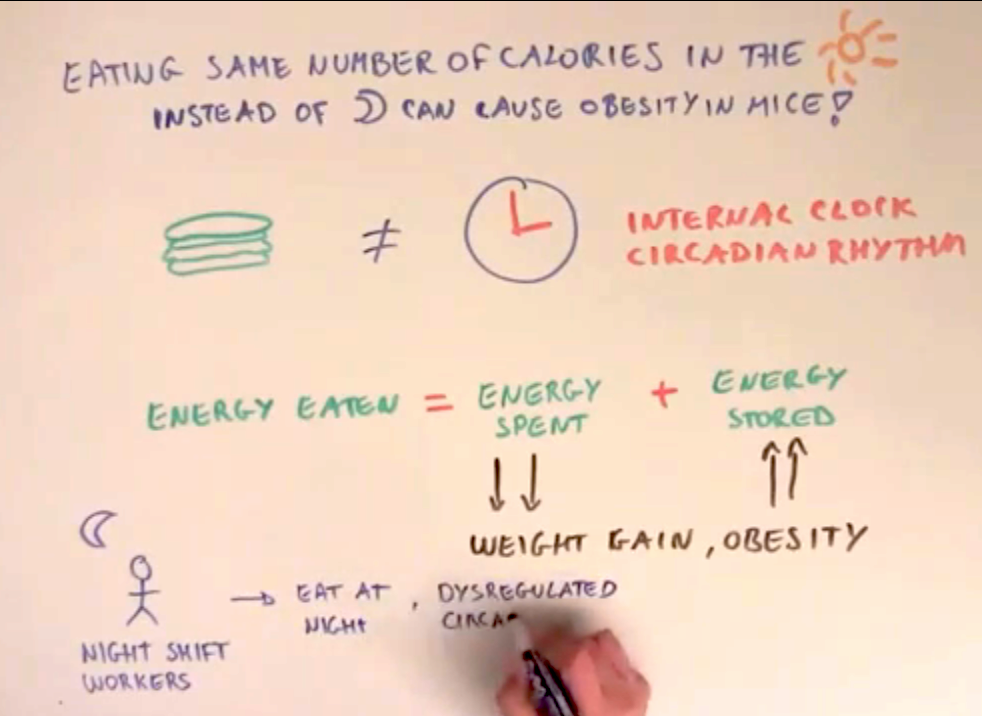 EATING SAME NUMBER OF CALORIES IN THE
INSTEAD OF CAN CAUSE OBESITY IN MICE!
≠
INTERNAL CLOCK
CIRCADIAN RHYTHM
ENERGY EATEN = ENERGY SPENT + ENERGY STORED
↓↓ ↑↑
WEIGHT GAIN, OBESITY
NIGHT SHIFT
WORKERS
→ EAT AT NIGHT, DYSREGULATED
CIRCA